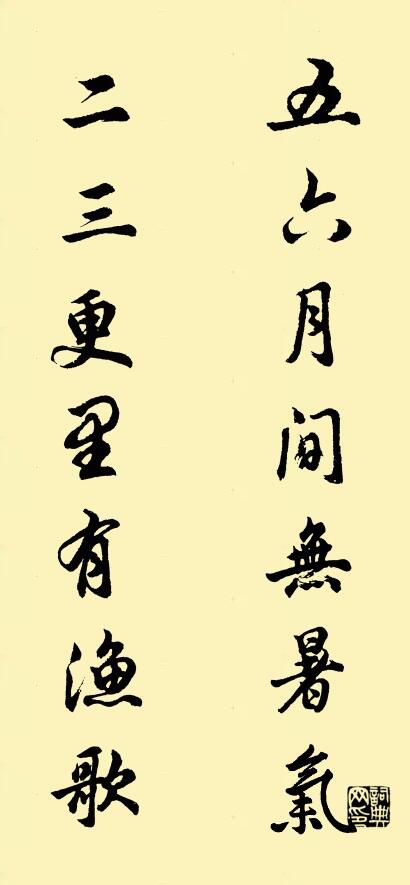 五六月間無暑氣
二三更里有漁歌
詞典網印